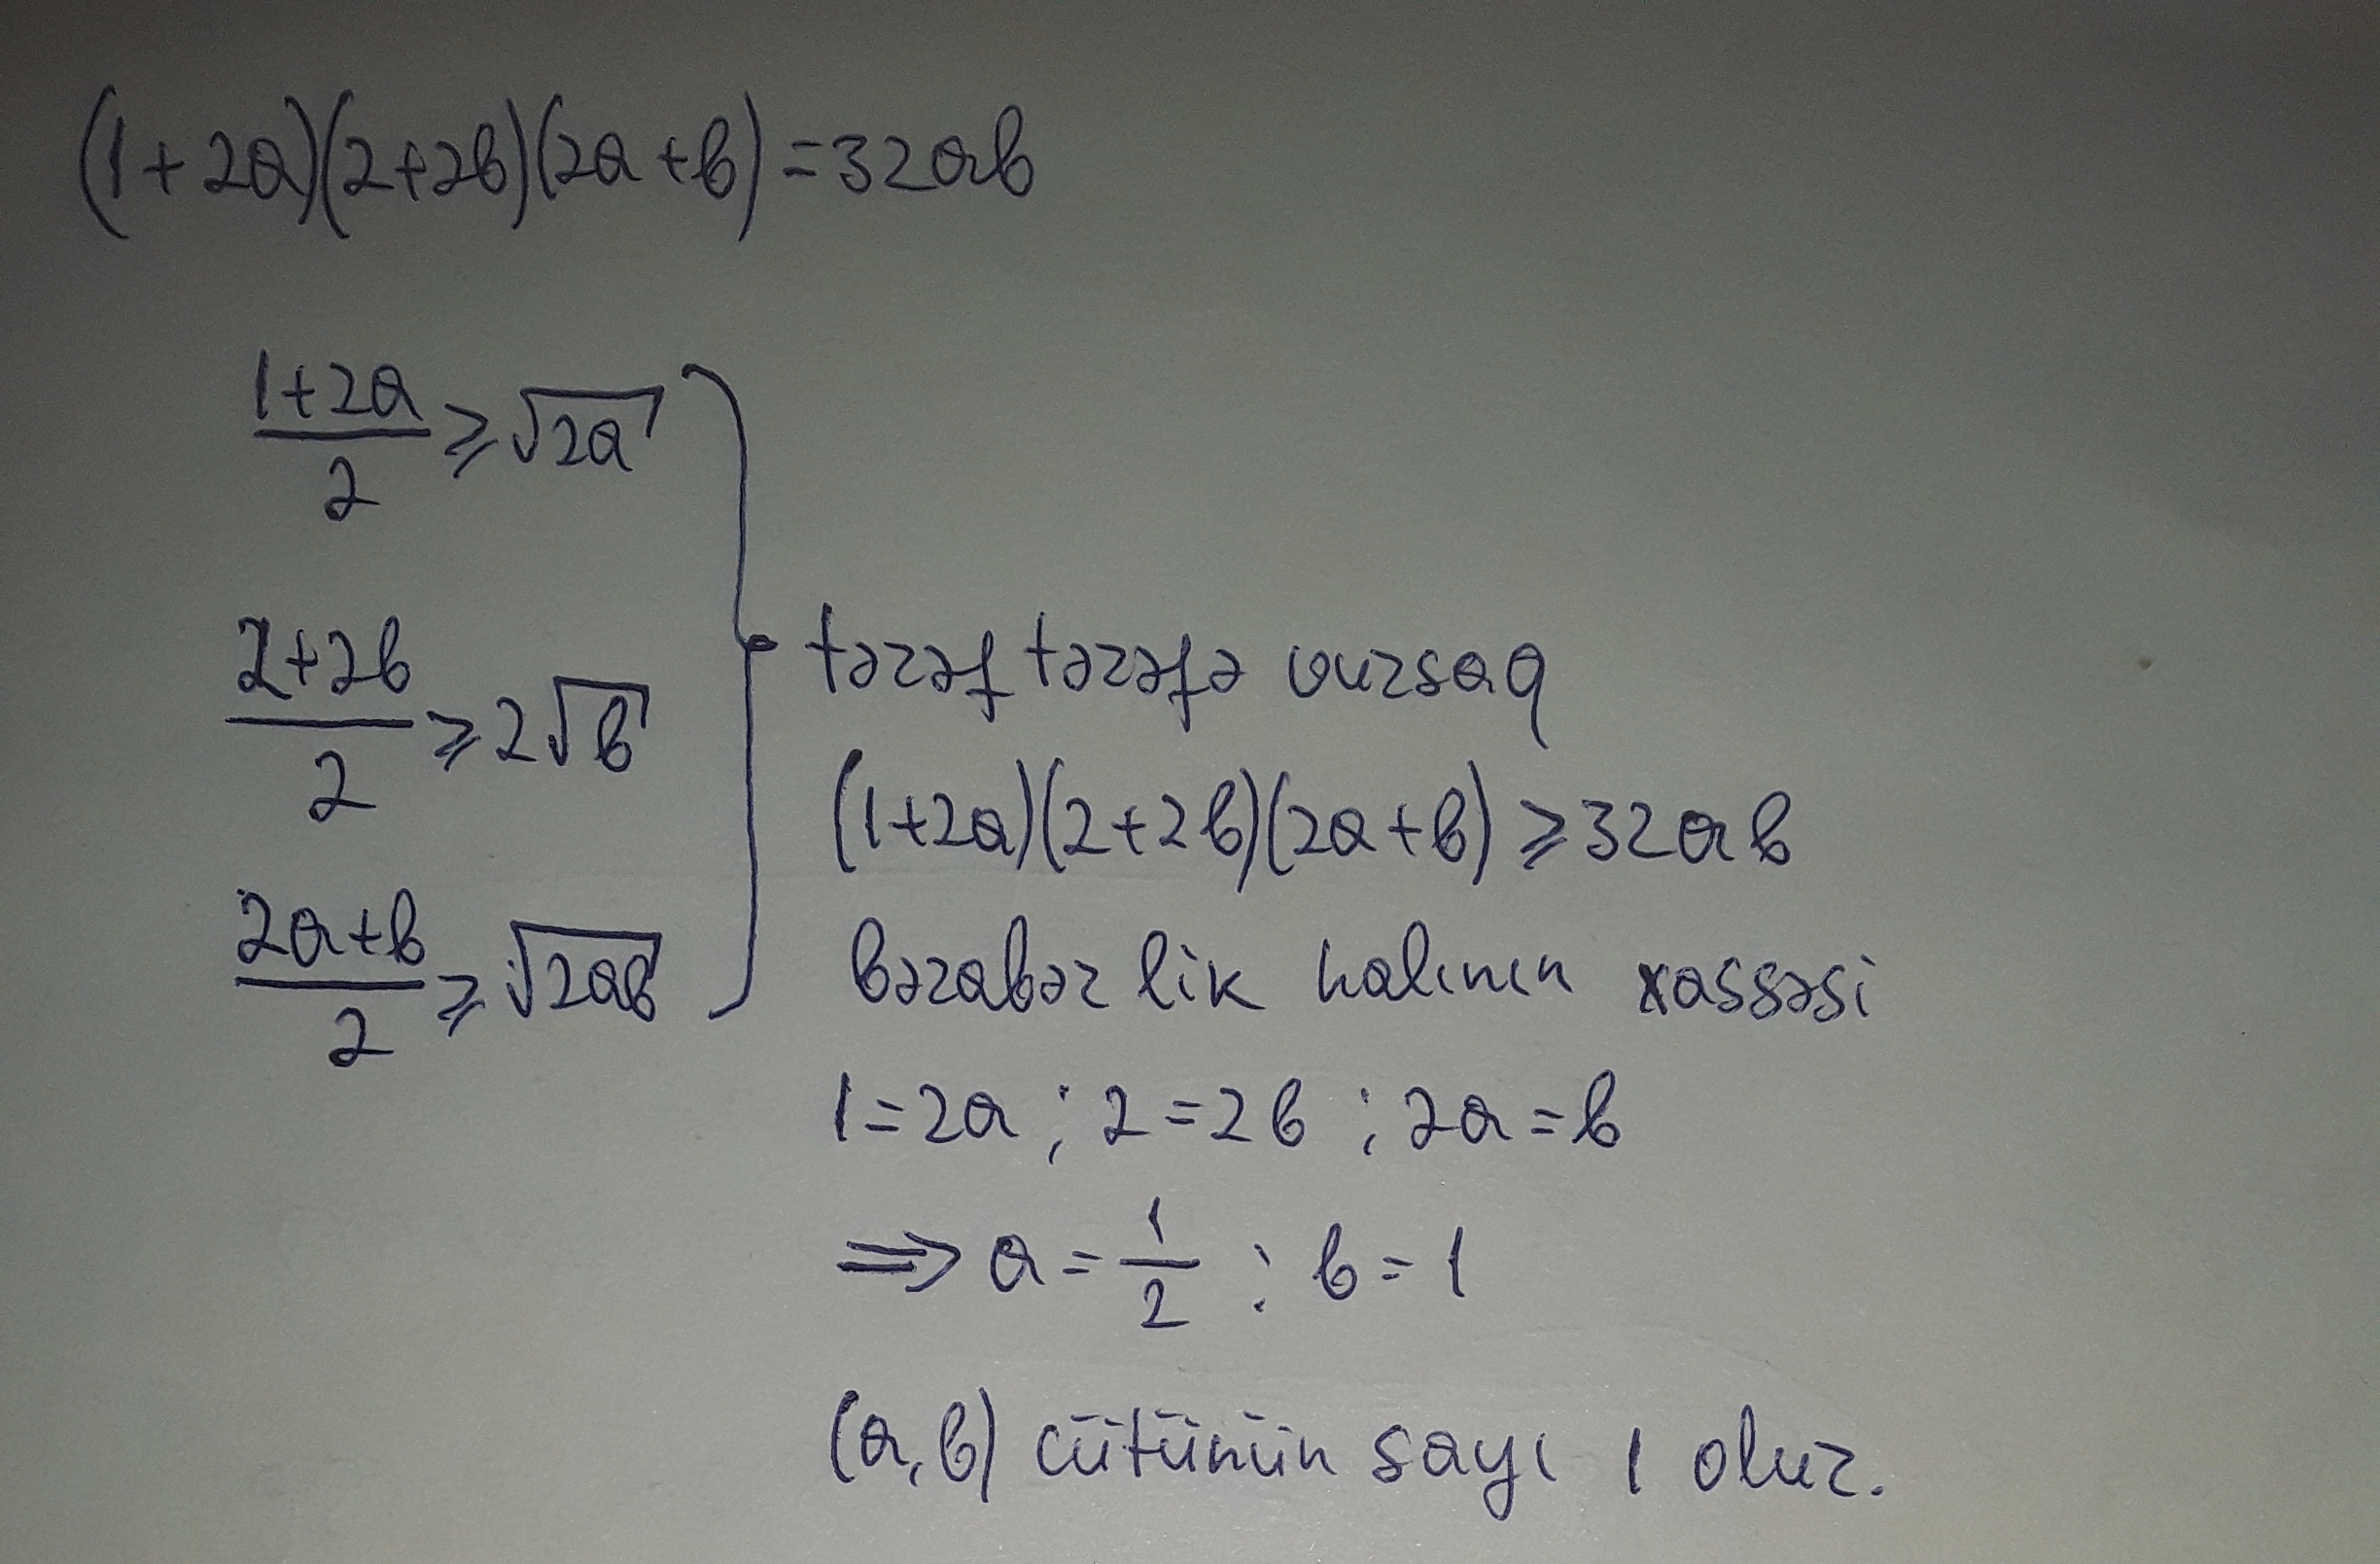 (1+2a)(2+2b)(2a+b)=32ab
(1+2a)/2 ≥ √2a
(2+2b)/2 ≥ 2√b
(2a+b)/2 ≥ √2ab
tərəf tərəfə vursaq
(1+2a)(2+2b)(2a+b) ≥ 32ab
bərabər lik halının xassəsi
1=2a ; 2=2b ; 2a=b
⇒ a = 1/2 ; b=1
(a,b) cütünün sayı 1 olur.